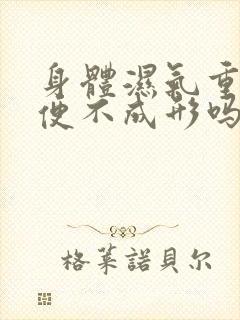 身體濕氣重
便不成形吗
格莱諾貝尔